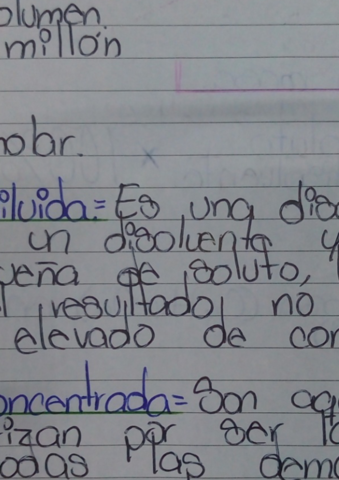 olumen.
millón
molar.
iluida= Es una diso
un disolvente y
ueña de soluto,
resultado no
elevado de con
oncentrada= Son aq
izan por ser la
odas las demá